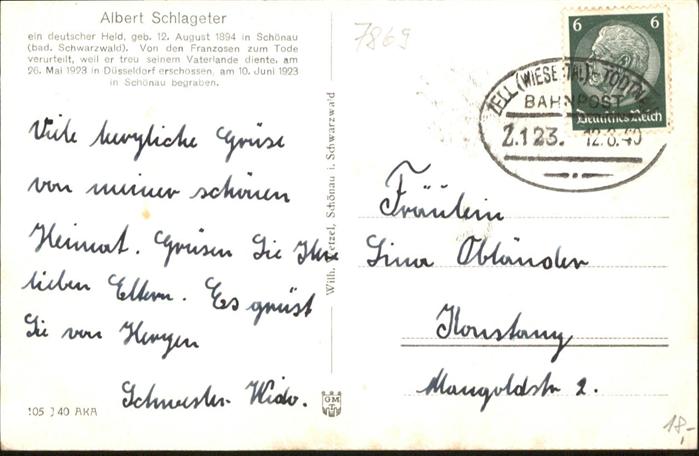 Albert Schlageter
ein deutscher Held, geb. 12. August 1894 in Schönau
(bad. Schwarzwald). Von den Franzosen zum Tode
verurteilt, weil er treu seinem Vaterlande diente, am
26. Mai 1923 in Düsseldorf erschossen, am 10. Juni 1923
in Schönau begraben.
7869
6 6
Deutsches Reich
ZELL (WIESENTAL)-TODTNAU
BAHNPOST
Z.123. 12.8.40
Viele herzliche Grüse
von meiner schönen
Heimat. Grüsen Sie Ihre
lieben Eltern. Es grüst
Sie von Herzen
Schwester
Wilh. Wetzel, Schönau i. Schwarzwald
Fräulein
Lina Obländer
Konstanz
Mangoldstr 2.
105 J 40 AKA
GM
18,-